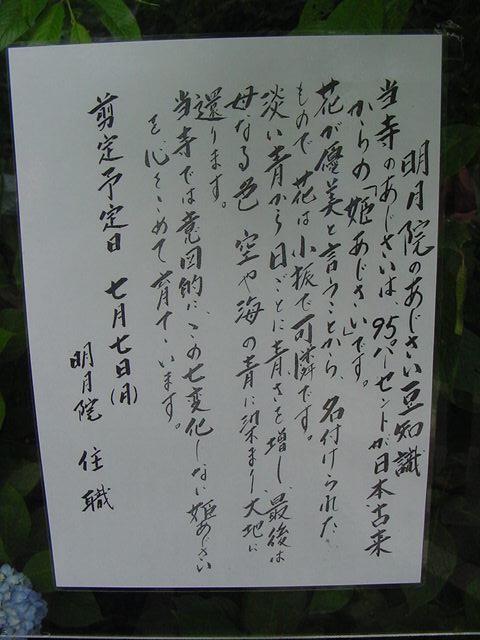 明月院のあじさい豆知識
当寺のあじさいは、95パーセントが日本古来
からの「姫あじさい」です。
花が優美と言うことから、名付けられた
もので花は小振で可憐です。
淡い青から日ごとに青さを増し、最後は
母なる色 空や海の青に染まり大地に
還ります。
当寺では意図的に、この七変化しない姫あじさい
を心をこめて育ています。
剪定予定日 七月七日(月)
明月院 住職